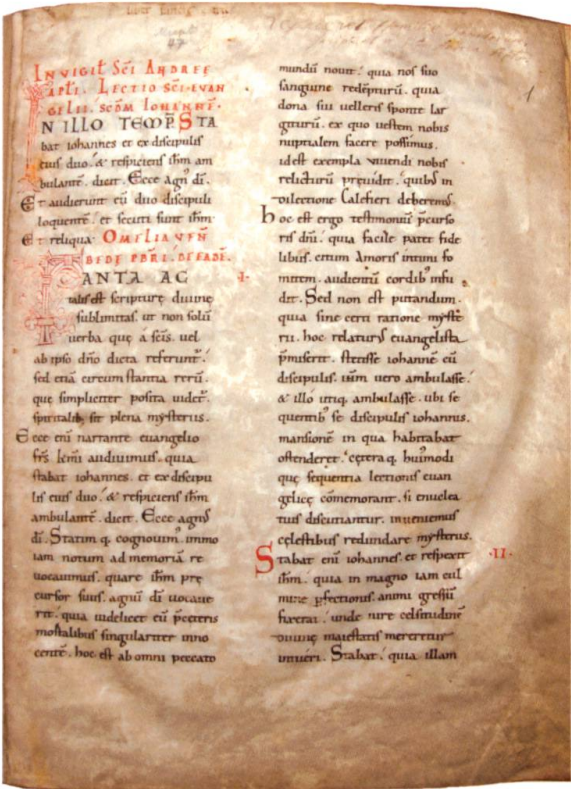 IN VIGIL̄ SC̄I ANDREĘ
APL̄I. LECTIO SC̄I EVAN
GELII. SCD̄M IOHANNĒ.
IN ILLO TEMP̄R STA
bat iohannes et ex discipulis
eius duo. & respiciens ih̄m am
bulantē. dicit. Ecce agn' dī.
Et audierunt eū duo discipuli
loquentē. et secuti sunt ih̄m
Et reliqua. OMELIA VEN̄
BEDE PBR̄I. DE EADĒ.
TANTA AC
talis est scripturę divinę
sublimitas. ut non solū
verba quę a sc̄is. vel
ab ipso dn̄o dicta referunt'.
sed etiā circumstantia rerū.
quę simpliciter posita videt'.
spiritalib; sit plena mysteriis.
Ecce enī narrante euangelio
frs̄ km̄i audivimus. quia
stabat iohannes. et ex discipu
lis eius duo. & respiciens ih̄m
ambulantē. dicit. Ecce agn'
dī. Statim q. cognovim'. immo
iam notum ad memoriā re
vocavimus. quare ih̄m prę
cursor suus. agnū dī vocave
rit. quia videlicet eū p̄ cęteris
mortalibus singulariter inno
centē. hoc est ab omni peccato
mundū novit. quia nos suo
sanguine redēpturū. quia
dona sui velleris sponte lar
giturū. ex quo vestem nobis
nuptialem facere possimus.
id est exempla vivendi nobis
relicturū p̄vidit. quib' in
dilectione calefieri deberem'.
hoc est ergo testimoniū p̄curso
ris dn̄i. quia facile patet fide
libus. etiam amoris intimi fo
mitem. audientū cordib' infu
dit. Sed non est putandum.
quia sine certi ratione mystē
rii. hoc relatur' evangelista
p̄miserit. stetisse iohannē cū
discipulis. ih̄m vero ambulasse.
& illó utiq. ambulasse. ubi se
quentib' se discipulis iohannis.
mansionē in qua habitabat
ostenderet. cętera q. hui'modi
quę sequentia lectionis evan
gelicę cōmemorant. si enuclea
tius discutiantur. inveniemus
cęlestibus redundare mysteriis.
Stabat enī iohannes. et respexit .II.
ih̄m. quia in magno iam cul
mine p̄fectionis. animi gressū
fixerat. unde iure celsitudinē
divinę maiestatis meretur
intueri. Stabat. quia illam